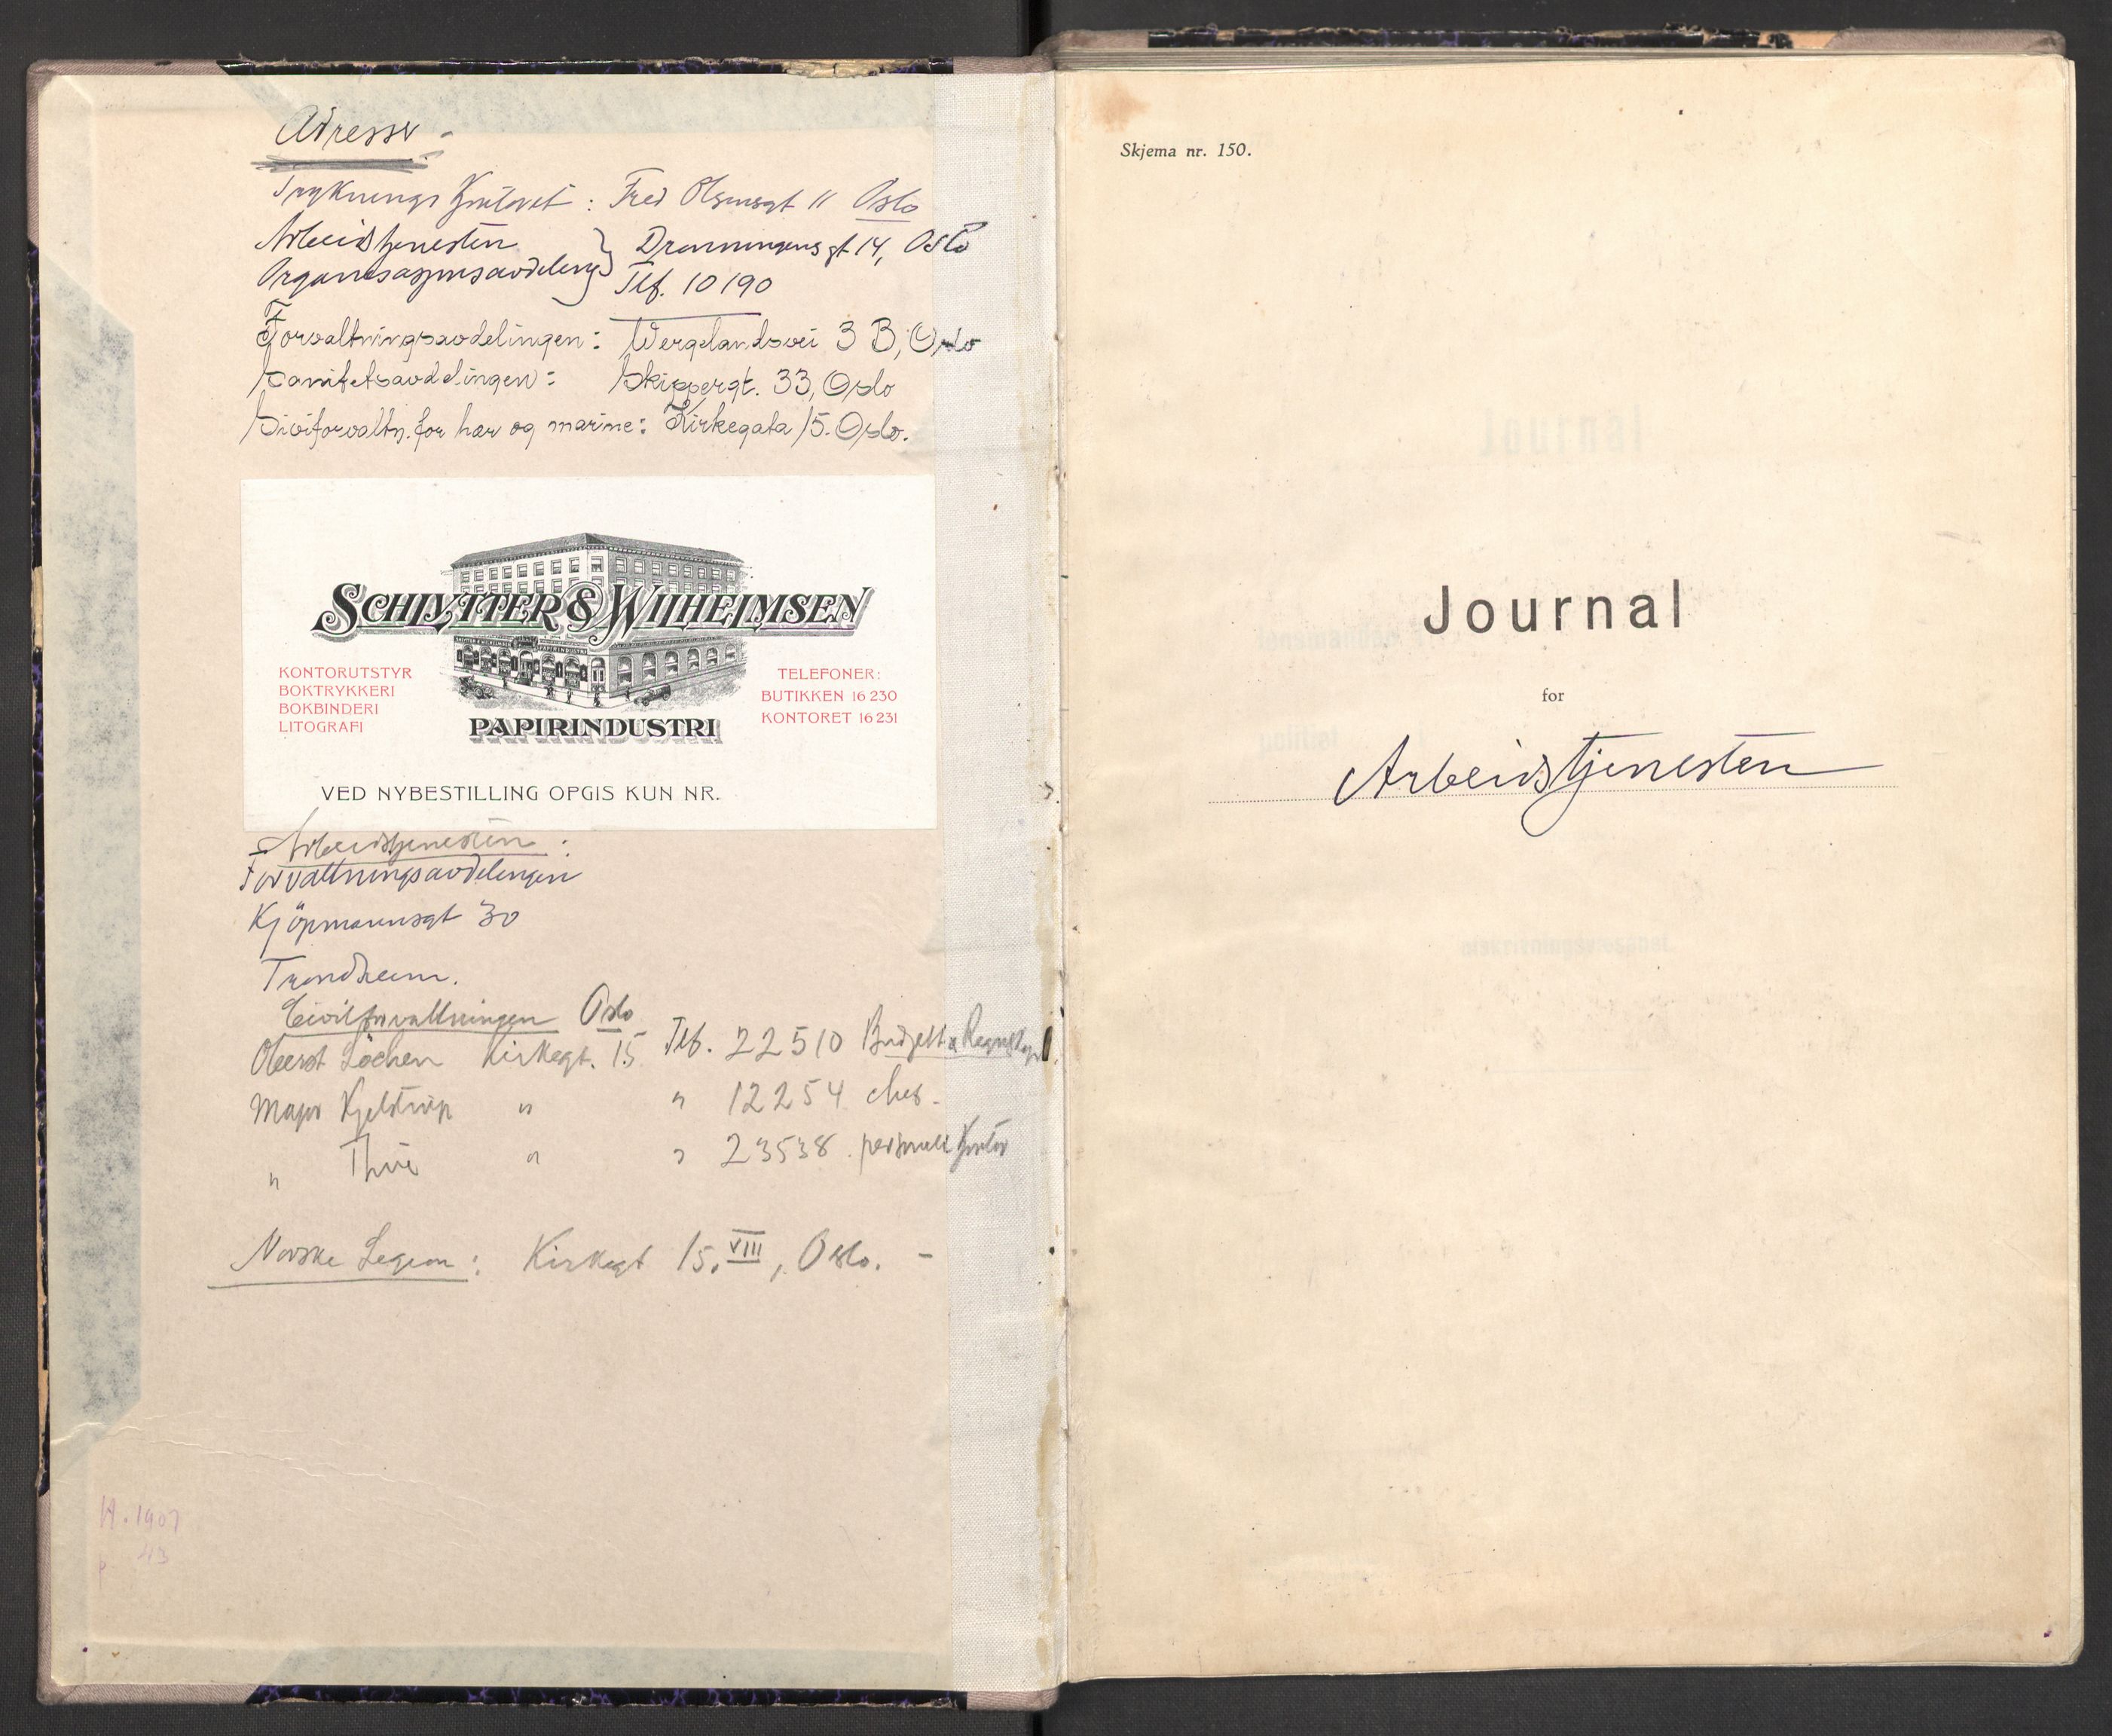 Adresse -
Tryknings Kontoret : Fred Olsensgt 11 Oslo
Arbeidstjenesten } Dronningensgt 14, Oslo
Organisasjonsavdeling } Tlf. 10190
Forvaltningsavdelingen : Wergelandsvei 3 B, Oslo
Sanitetsavdelingen : Skippergt. 33, Oslo
Siviforvaltn. for hær og marine : Kirkegata 15. Oslo.
SCHLYTTER & WILHELMSEN
KONTORUTSTYR
BOKTRYKKERI
BOKBINDERI
LITOGRAFI
TELEFONER:
BUTIKKEN 16 230
KONTORET 16 231
PAPIRINDUSTRI
VED NYBESTILLING OPGIS KUN NR.
Arbeidstjenesten :
Forvaltningsavdelingen
Kjöpmannsgt 30
Trondheim.
Civilforvaltningen Oslo
Oberst Löchen Kirkegt. 15 Tlf. 22510 Budsjett &
Major Kjelstrup " " 12254 ches.
" " " 23538. personell Kontor
Norske Legion : Kirkegt 15. VIII, Oslo. -
H. 1907
p 43
Skjema nr. 150.
Journal
for
Arbeidstjenesten